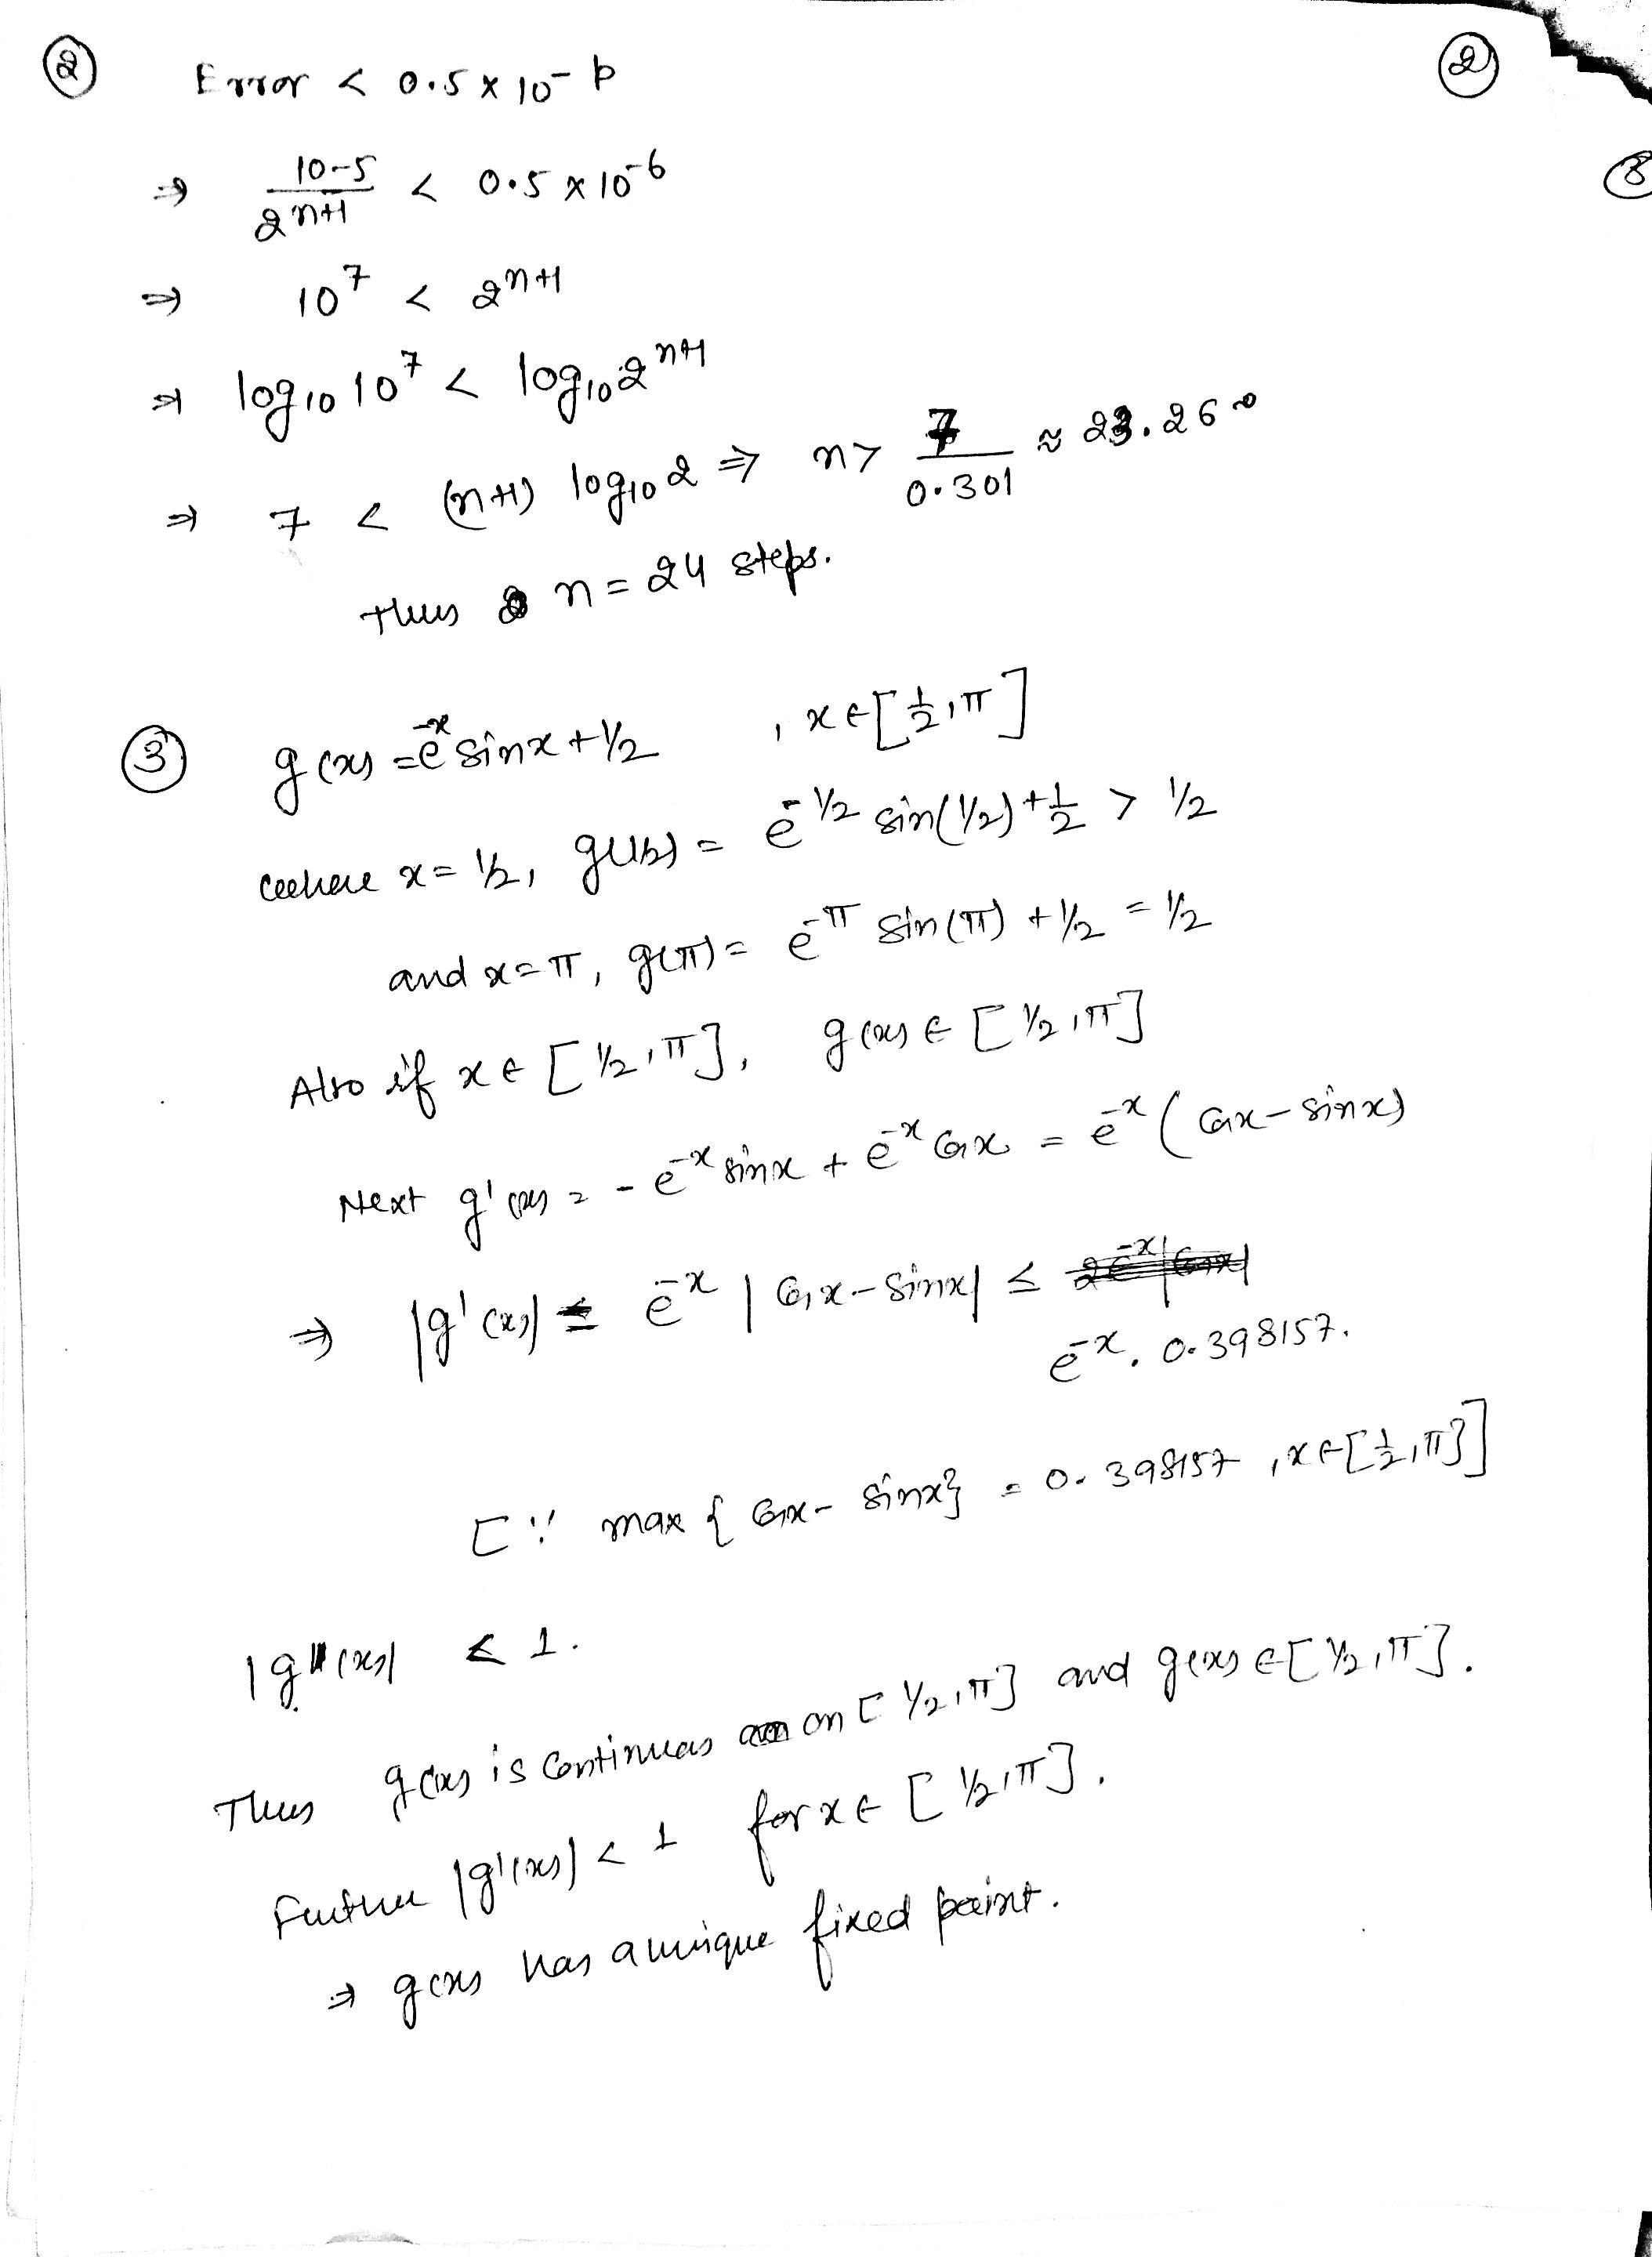 ② Error < 0.5 × 10^-p ②
⇒ (10-5)/(2^(n+1)) < 0.5 × 10^-6 ③
⇒ 10^7 < 2^(n+1)
⇒ log₁₀ 10^7 < log₁₀ 2^(n+1)
⇒ 7 < (n+1) log₁₀ 2 ⇒ n > 7/0.301 ≈ 23.26
Thus n = 24 steps.
③ g(x) = e^-x sinx + 1/2 , x ∈ [1/2, π]
x = 1/2, g(1/2) = e^-1/2 sin(1/2) + 1/2 > 1/2
and x = π, g(π) = e^-π sin(π) + 1/2 = 1/2
Also if x ∈ [1/2, π], g(x) ∈ [1/2, π]
Next g'(x) = - e^-x sinx + e^-x Cosx = e^-x (Cosx - sinx)
⇒ |g'(x)| ≤ e^-x |Cosx - sinx| ≤
e^-x. 0.398157.
[∵ max {Cosx - sinx} = 0.398157, x ∈ [1/2, π]]
|g'(x)| < 1.
Thus g(x) is Continuas on [1/2, π] and g(x) ∈ [1/2, π].
Further |g'(x)| < 1 for x ∈ [1/2, π].
⇒ g(x) has a unique fixed point.